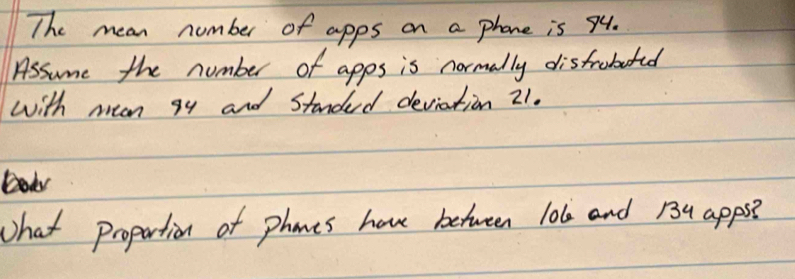 The mean number of apps on a phone is 94.
Assume the number of apps is normally distrubuted
with mean 94 and standerd deviation 21.
What proportion of phones have between 106 and 134 apps?